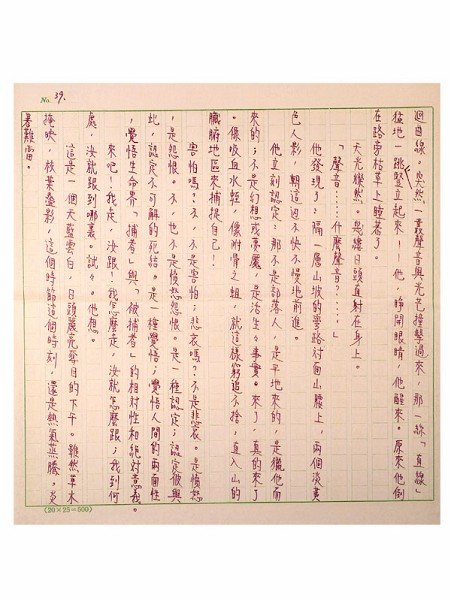 No. 39.
迴目線，突然，一叢聲音與光芒撞擊過來，那一絲「直線」
猛地一跳豎立起來！——他，睜開眼睛，他醒來。原來他倒
在路旁枯草上睡着了。
天光爍然。思緒日頭直射在身上。
「聲音……什麼聲音……」
他發現了：隔一層山坡的彎路對面山腰上，兩個淡黃
色人影，朝這邊不快不慢地前進。
他立刻認定：那不是部落人，是平地來的，是獵他而
來的；不是幻相或夢魘，是活生生事實。來了，真的來了
。像吸血水蛭，像附骨之蛆，就這樣窮追不捨，直入山的
臟腑地區來捕捉自己！
害怕嗎？不，不是害怕；悲哀嗎？不是悲哀。是憤怒
，是怨恨。不，也不是憤怒怨恨。是一種認定；認定彼與
此，認定不可解的死結。是一種覺悟；覺悟人間的兩面性
，覺悟生命界「捕者」與「被捕者」的相對性和絕對意義。
來吧！我走，汝跟！我怎麼走，汝就怎麼跟；我到何
處，汝就跟到哪裏。試試。他想。
這是一個天藍雲白，日頭晨亮奪目的下午。雖然草木
掩映，枝葉疊影，這個時節這個時刻，還是熱氣蒸騰，炎
暑難當。
(20×25=500)